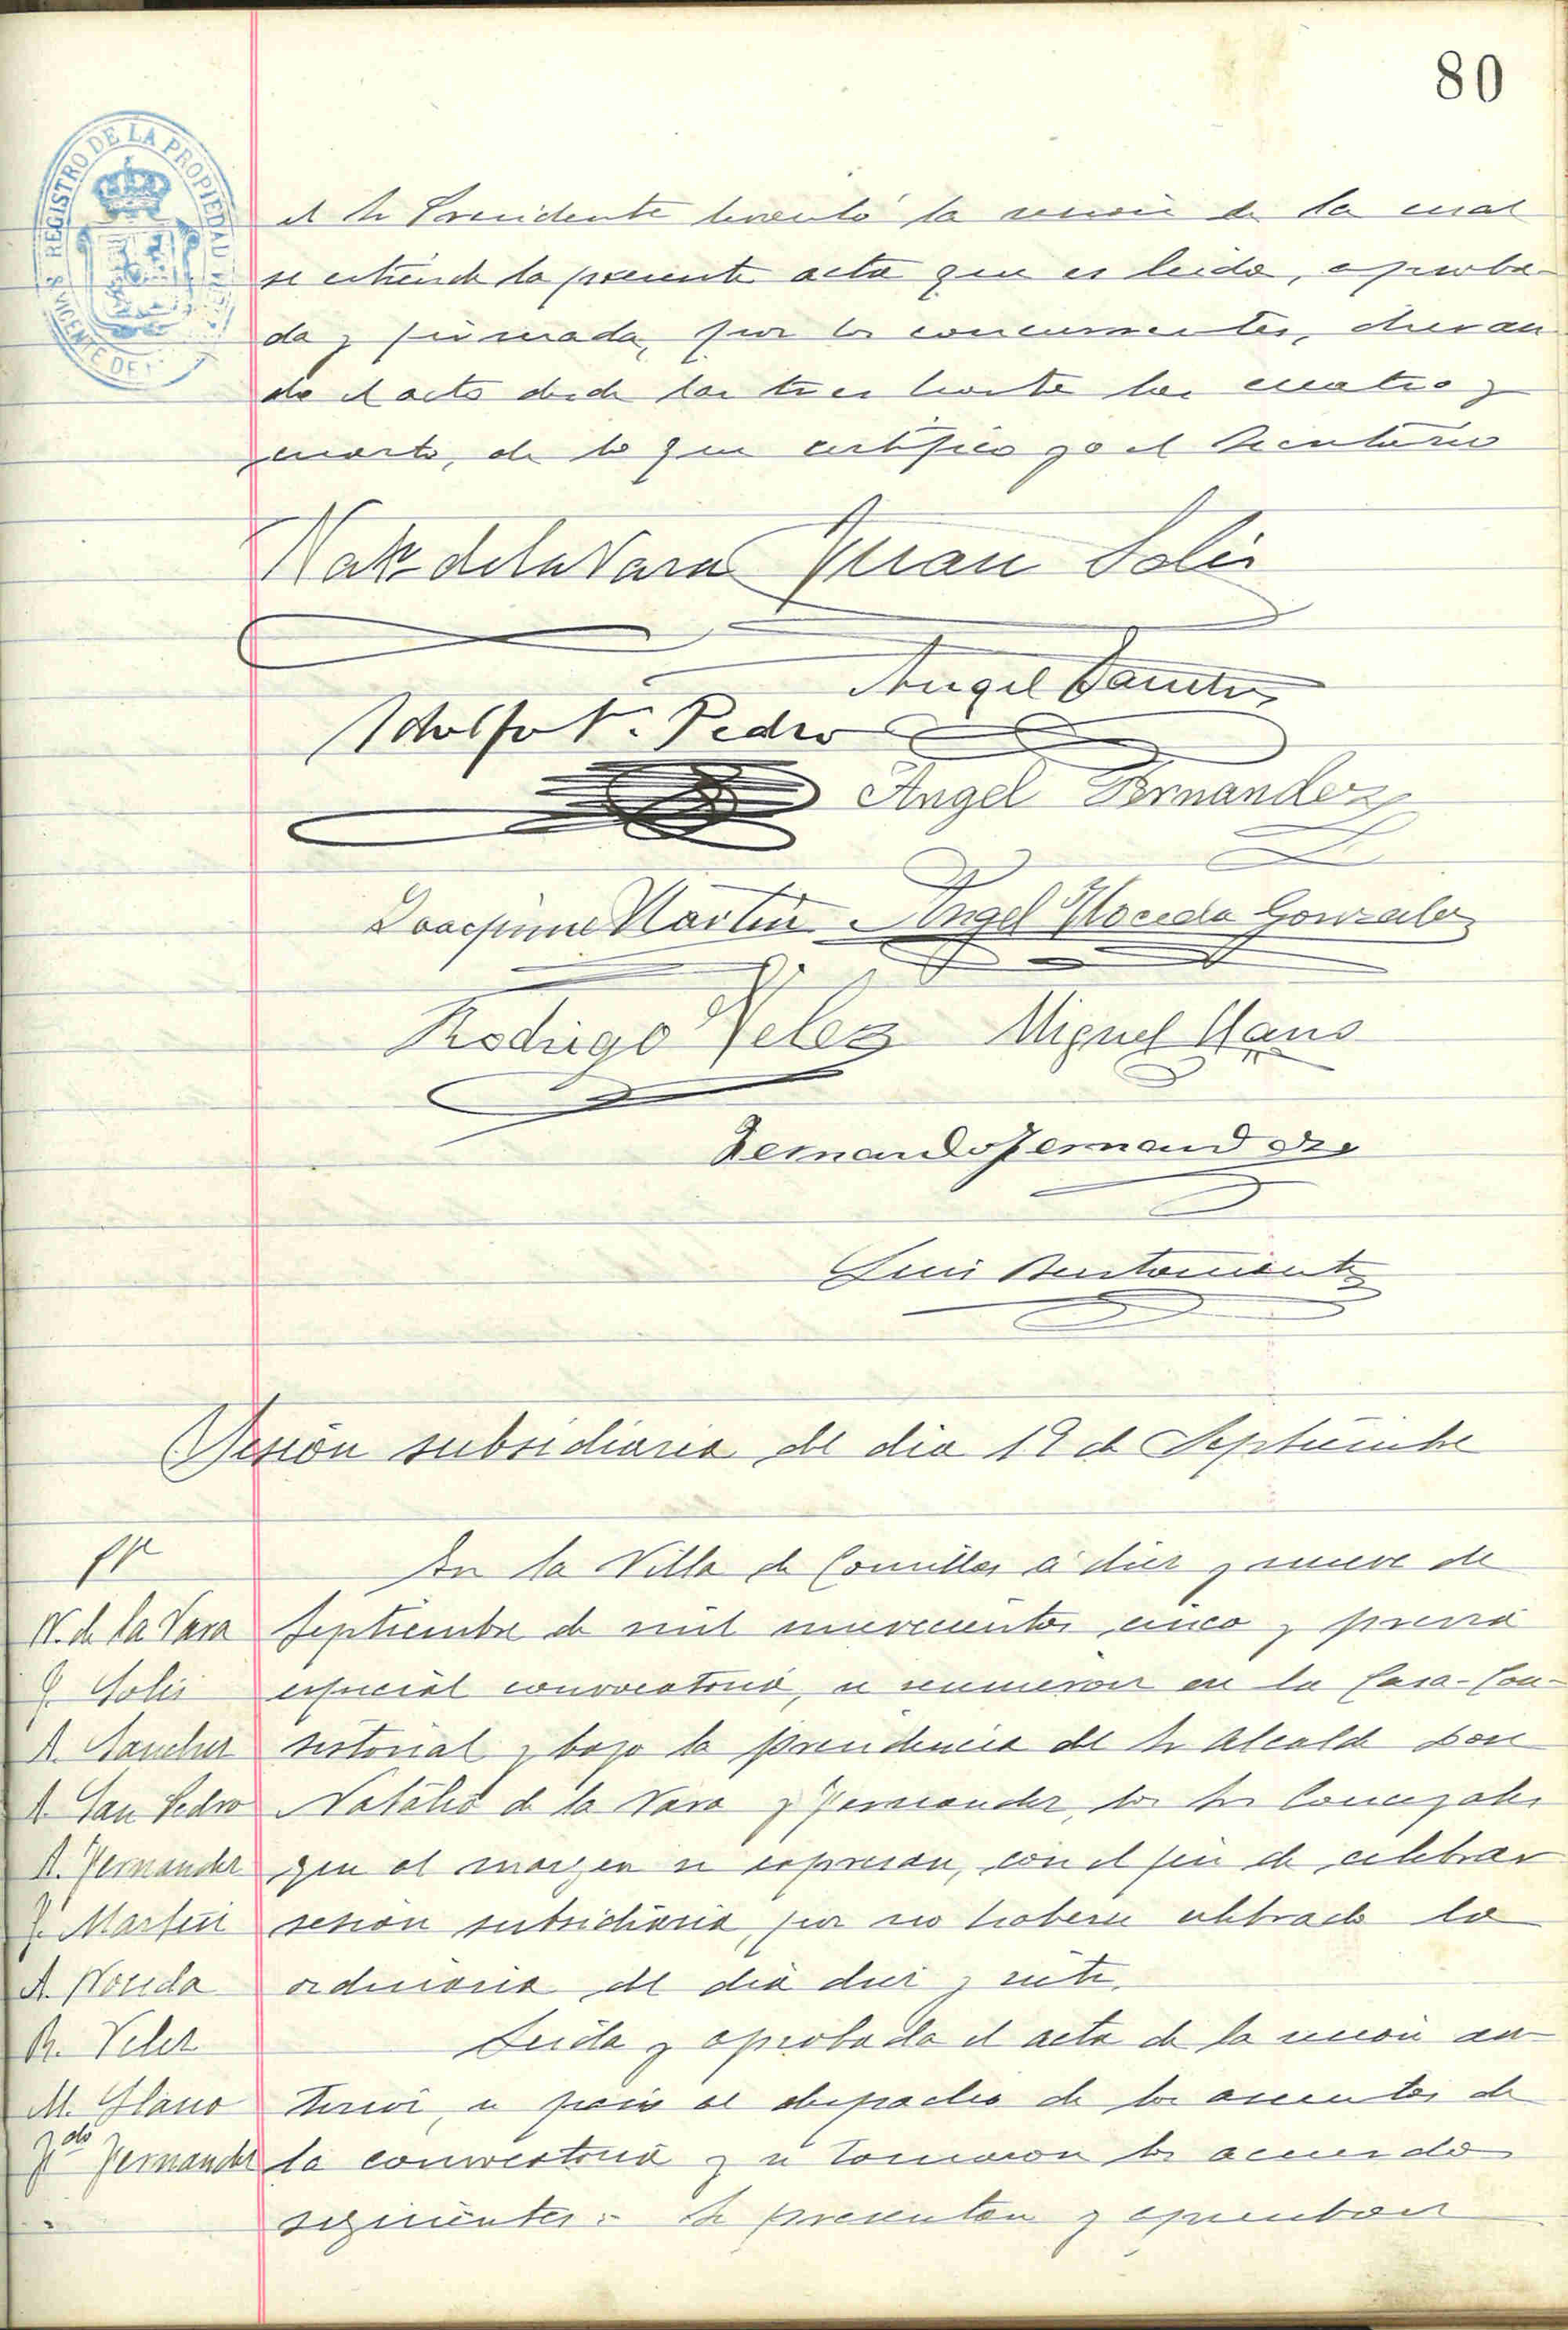 80
REGISTRO DE LA PROPIEDAD
S. VICENTE DE
el Sr Presidente levantó la sesion de la cual
se estiende la presente acta que es leida, aproba-
da y firmada, por los concurrentes, duran-
do el acto desde las tres hasta las cuatro y
cuarto, de lo que certifico yo el Secretario
Nat. de la Vara Juan Solis
Angel Sanchez
Adolfo S. Pedro
Angel Fernandez
Joaquin Martin Angel Noceda Gonzalez
Rodrigo Velez Miguel Llano
Fernando Fernandez
Luis Bustamante
Sesion subsidiaria del dia 19 de Septiembre
En la Villa de Comillas á diez y nueve de
N. de la Vara Septiembre de mil novecientos cinco y previa
J. Solis especial convocatoria, se reunieron en la Casa-Con-
A. Sanchez sistorial y bajo la presidencia del Sr Alcalde Don
A. San Pedro Natalio de la Vara y Fernandez, los Srs Concejales
A. Fernandez que al margen se espresan, con el fin de celebrar
J. Martin sesion subsidiaria, por no haberse celebrado la
A. Noceda ordinaria del dia diez y siete.
R. Velez Leida y aprobada el acta de la sesion an-
M. Llano terior, se pasó al despacho de los asuntos de
Fdo Fernandez la convocatoria y se tomaron los acuerdos
siguientes: Se presentan y aprueban